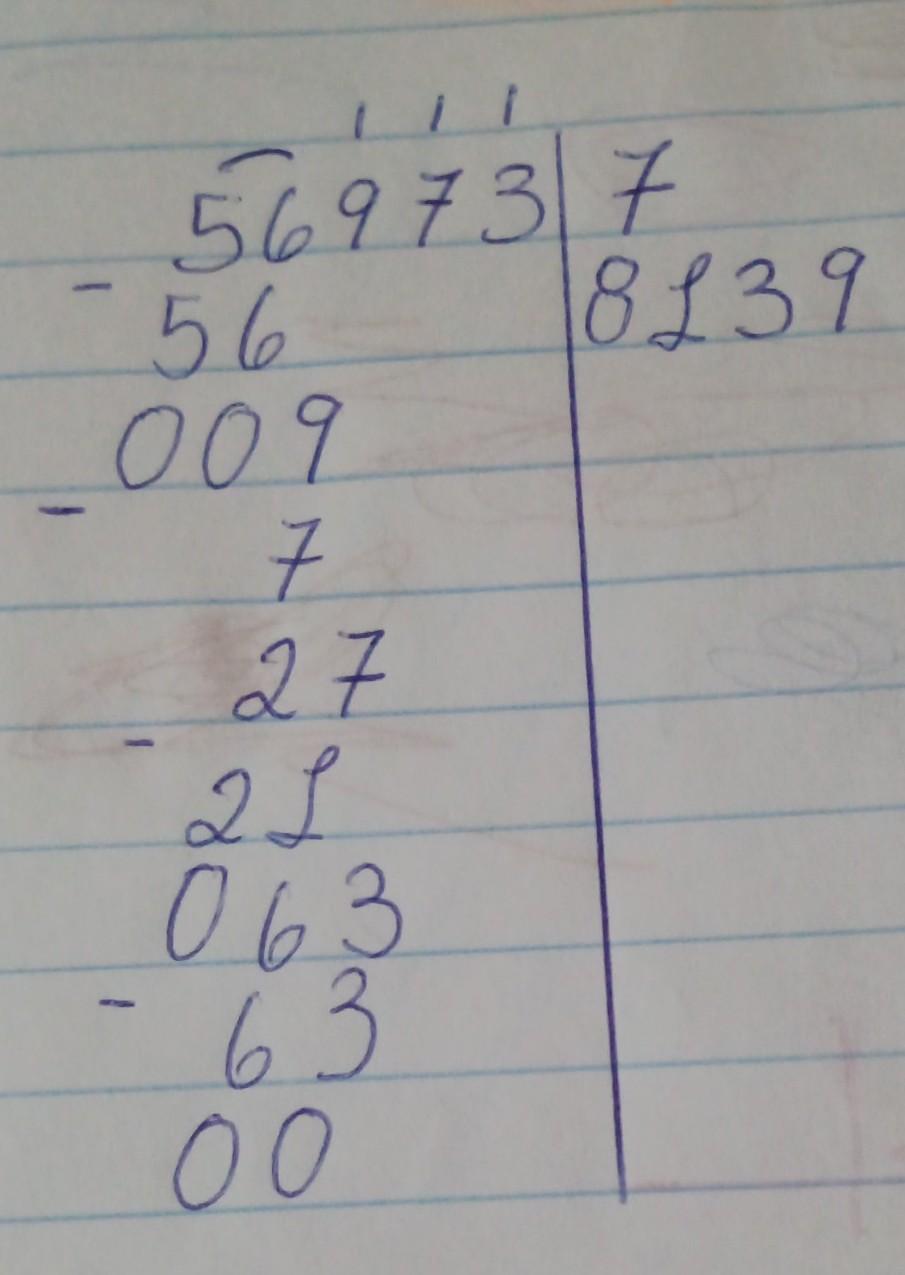 56973 | 7
- 56 | 8139
009
- 7
27
- 21
063
- 63
00